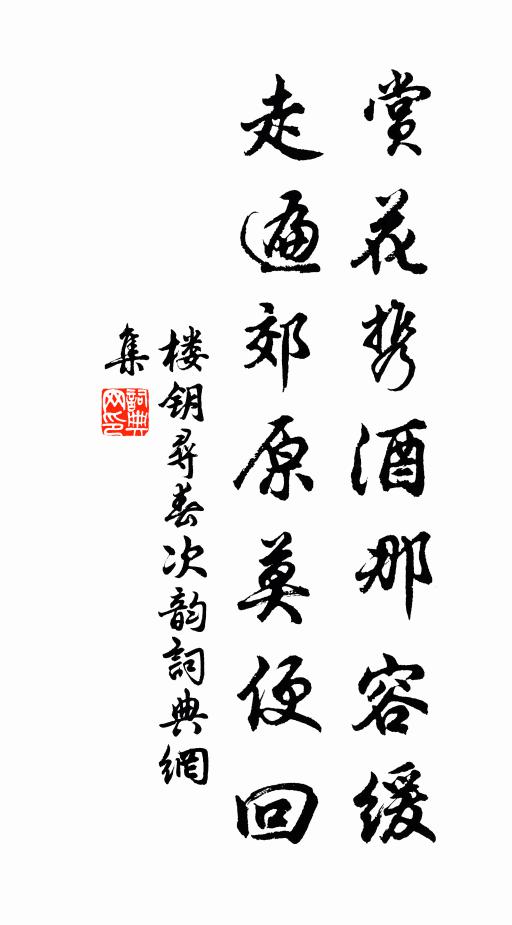 赏花携酒那容缓
走遍郊原莫便回
楼钥寻春次韵詞典網
集
詞典
网印